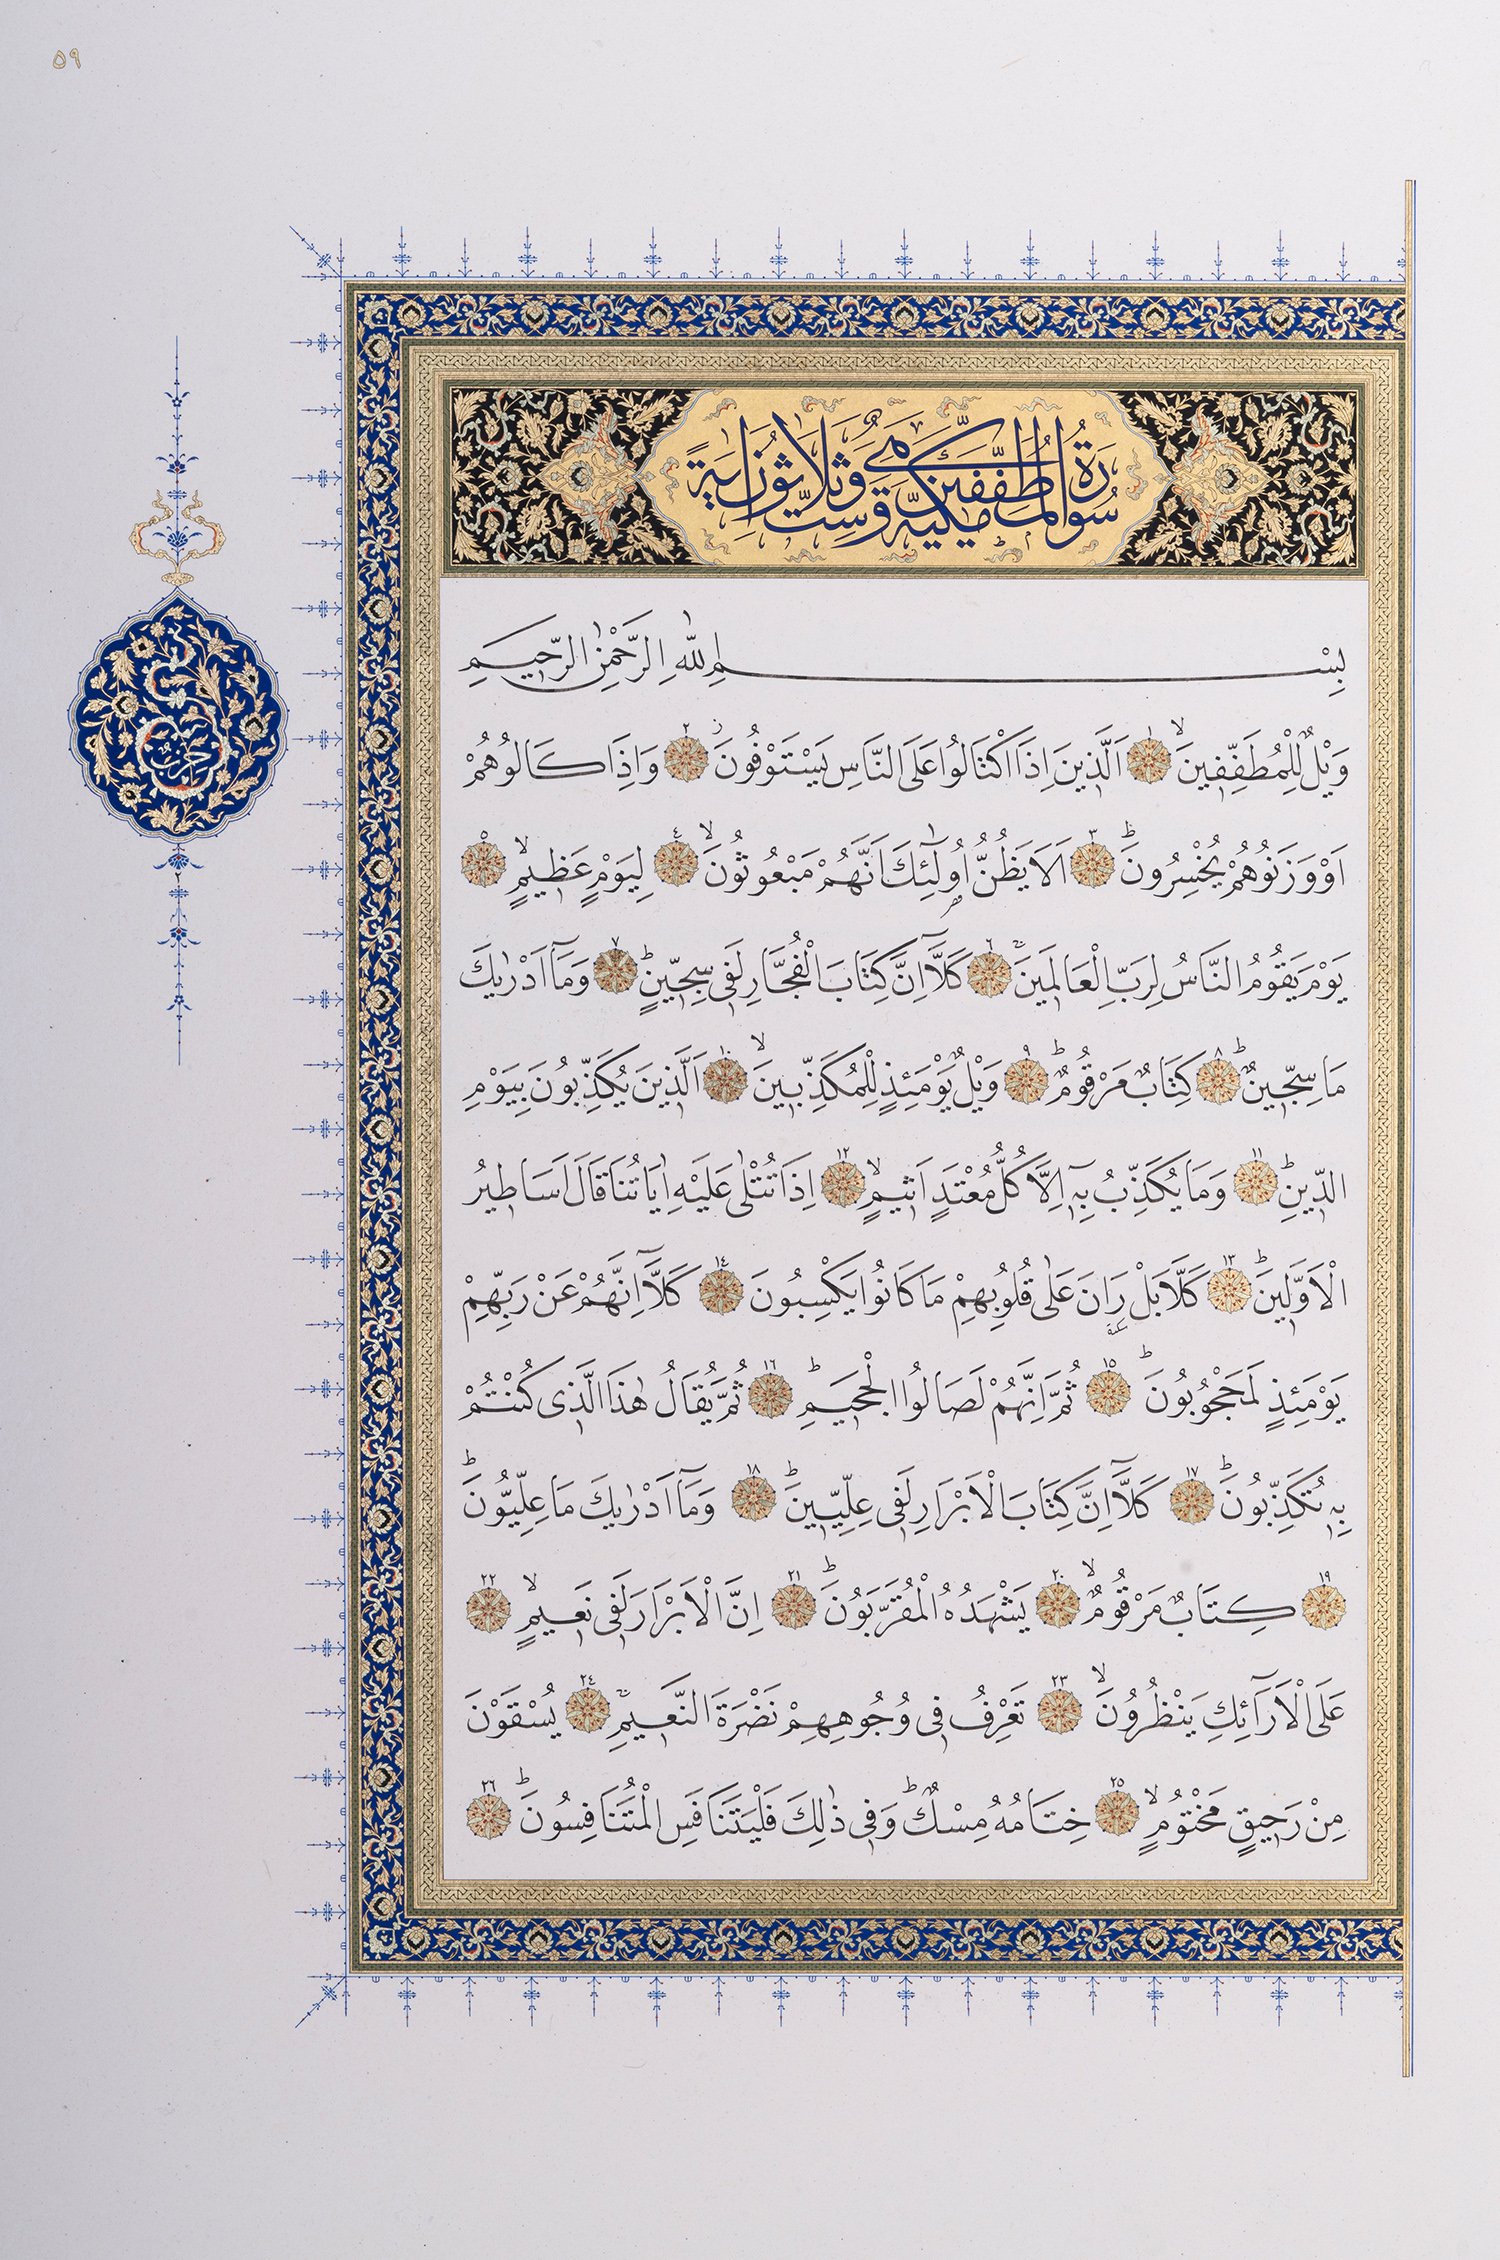 ٥٩
سُورَةُ الْمُطَفِّفِينَ مَكِّيَّةٌ وَهِيَ سِتٌّ وَثَلَاثُونَ اٰيَةً
بِسْمِ اللّٰهِ الرَّحْمٰنِ الرَّح۪يمِ
وَيْلٌ لِلْمُطَفِّف۪ينَۙ ١ اَلَّذ۪ينَ اِذَا اكْتَالُوا عَلَى النَّاسِ يَسْتَوْفُونَۘ ٢ وَاِذَا كَالُوهُمْ
اَوْ وَزَنُوهُمْ يُخْسِرُونَۜ ٣ اَلَا يَظُنُّ اُو۬لٰٓئِكَ اَنَّهُمْ مَبْعُوثُونَۙ ٤ لِيَوْمٍ عَظ۪يمٍۙ ٥
يَوْمَ يَقُومُ النَّاسُ لِرَبِّ الْعَالَم۪ينَ ٦ كَلَّٓا اِنَّ كِتَابَ الْفُجَّارِ لَف۪ي سِجّ۪ينٍۜ ٧ وَمَٓا اَدْرٰيكَ
مَا سِجّ۪ينٌۜ ٨ كِتَابٌ مَرْقُومٌۜ ٩ وَيْلٌ يَوْمَئِذٍ لِلْمُكَذِّب۪ينَۙ ١٠ اَلَّذ۪ينَ يُكَذِّبُونَ بِيَوْمِ
الدّ۪ينِۜ ١١ وَمَا يُكَذِّبُ بِه۪ٓ اِلَّا كُلُّ مُعْتَدٍ اَث۪يمٍۙ ١٢ اِذَا تُتْلٰى عَلَيْهِ اٰيَاتُنَا قَالَ اَسَاط۪يرُ
الْاَوَّل۪ينَۜ ١٣ كَلَّا بَلْ رَانَ عَلٰى قُلُوبِهِمْ مَا كَانُوا يَكْسِبُونَ ١٤ كَلَّٓا اِنَّهُمْ عَنْ رَبِّهِمْ
يَوْمَئِذٍ لَمَحْجُوبُونَۜ ١٥ ثُمَّ اِنَّهُمْ لَصَالُوا الْجَح۪يمِۜ ١٦ ثُمَّ يُقَالُ هٰذَا الَّذ۪ي كُنْتُمْ
بِه۪ تُكَذِّبُونَۜ ١٧ كَلَّٓا اِنَّ كِتَابَ الْاَبْرَارِ لَف۪ي عِلِّيّ۪ينَۜ ١٨ وَمَٓا اَدْرٰيكَ مَا عِلِّيُّونَۜ
١٩ كِتَابٌ مَرْقُومٌۙ ٢٠ يَشْهَدُهُ الْمُقَرَّبُونَۜ ٢١ اِنَّ الْاَبْرَارَ لَف۪ي نَع۪يمٍۙ ٢٢
عَلَى الْاَرَٓائِكِ يَنْظُرُونَۙ ٢٣ تَعْرِفُ ف۪ي وُجُوهِهِمْ نَضْرَةَ النَّع۪يمِ ٢٤ يُسْقَوْنَ
مِنْ رَح۪يقٍ مَخْتُومٍۙ ٢٥ خِتَامُهُ مِسْكٌۜ وَف۪ي ذٰلِكَ فَلْيَتَنَافَسِ الْمُتَنَافِسُونَۜ ٢٦
حزب
٢